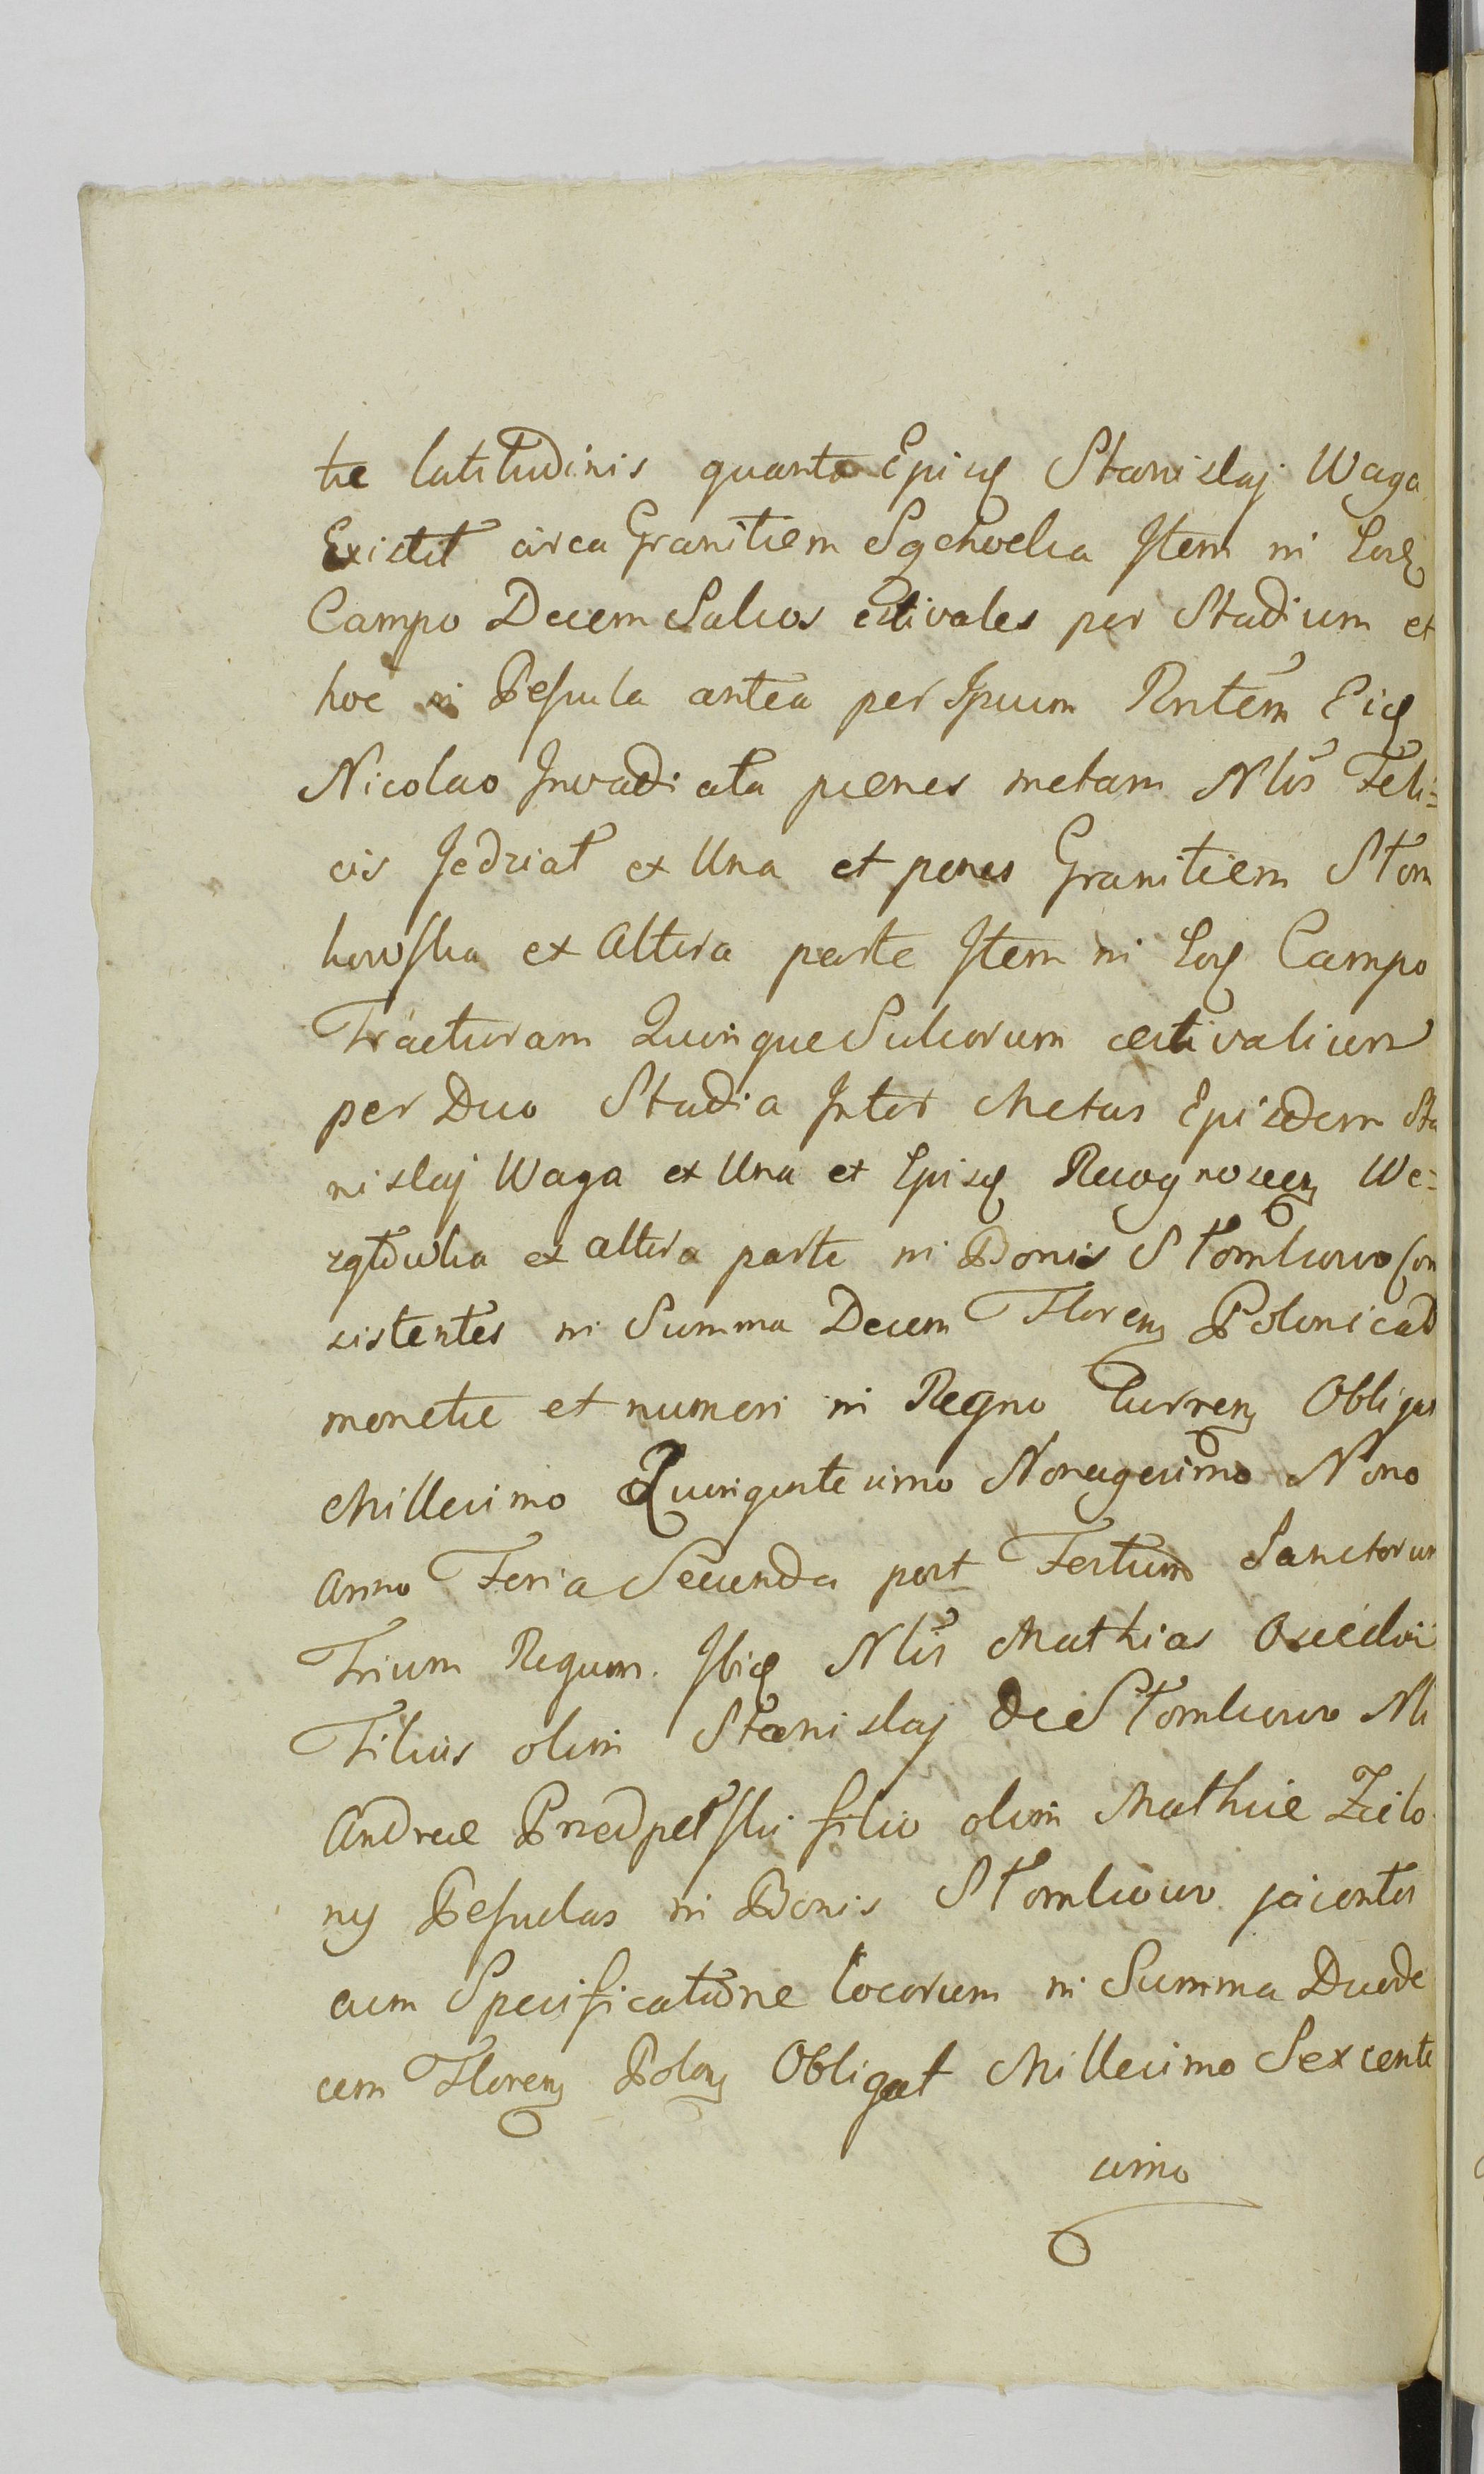 tæ latitudinis quanta Episq Stanislaj Waga
Existit circa Granitiem Sgchocka Item in Eodq
Campo Decem Sulcos estivales per Stadium et
hoc in Pesula antea per Ipsum Rntem Eidq
Nicolao Invadiata pænes metam Nlis Feli=
cis Jedziat ex Una et penes Granitiem Stom
kowska ex Altera parte Item in Eodq Campo
Tracturam Quinque Sulcorum æstivalium
per Duo Stadia Inter Metas Episdem Sta
nislaj Waga ex Una et Episq Recognoscen We=
ex altera parte in Bonis Stomkowo Con
sistentes in Summa Decem Floren Polonicad
monetæ et numeri in Regno Curren Obligat
Millesimo Quingentesimo Nonagesimo Nono
Anno Feria Secunda post Festum Sanctorum
Trium Regum. Ibiq Nlis Mathias
Filius olim Stanislaj de Stomkowo Nli
Andreæ Przedpełski filio olim Mathiæ Zielo
ny Pesulas in Bonis Stomkowo jacentes
cum Specificatione locorum in Summa Duode
cem Floren Polon Obligat Millesimo Sexcente
simo